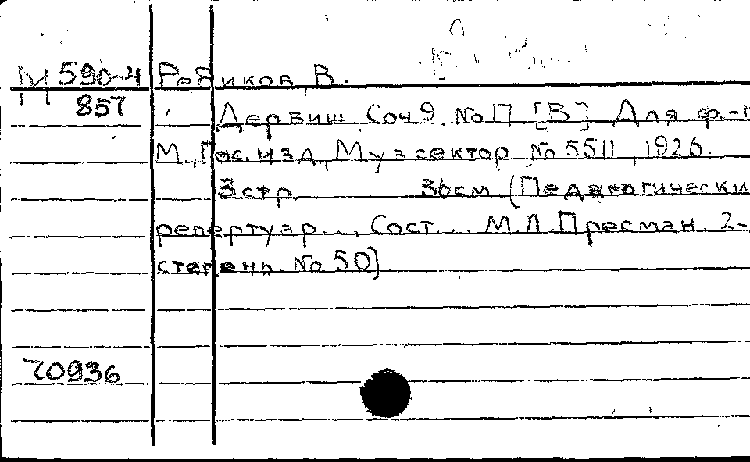 М 590-4 Ребиков, В.
857
Дервиш Соч 9. No 17 [В] Для ф.-п
М., Гос. изд, Муз сектор No 5511, 1926.
3 стр. 36 см (Педагогически
репертуар... Сост... М.Л. Пресман. 2-
степень. No 50)
70936